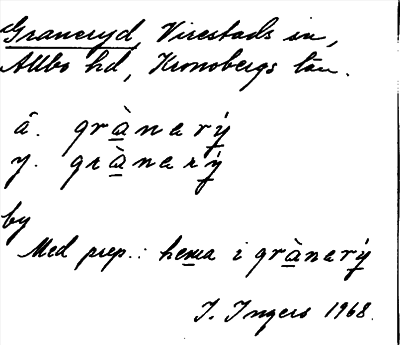 Graneryd, Virestads sn,
Allbo hd, Kronobergs län.
ä. grànerý
y. grànerý
by
Med prep.: hema i grànerý
I. Ingers 1968.